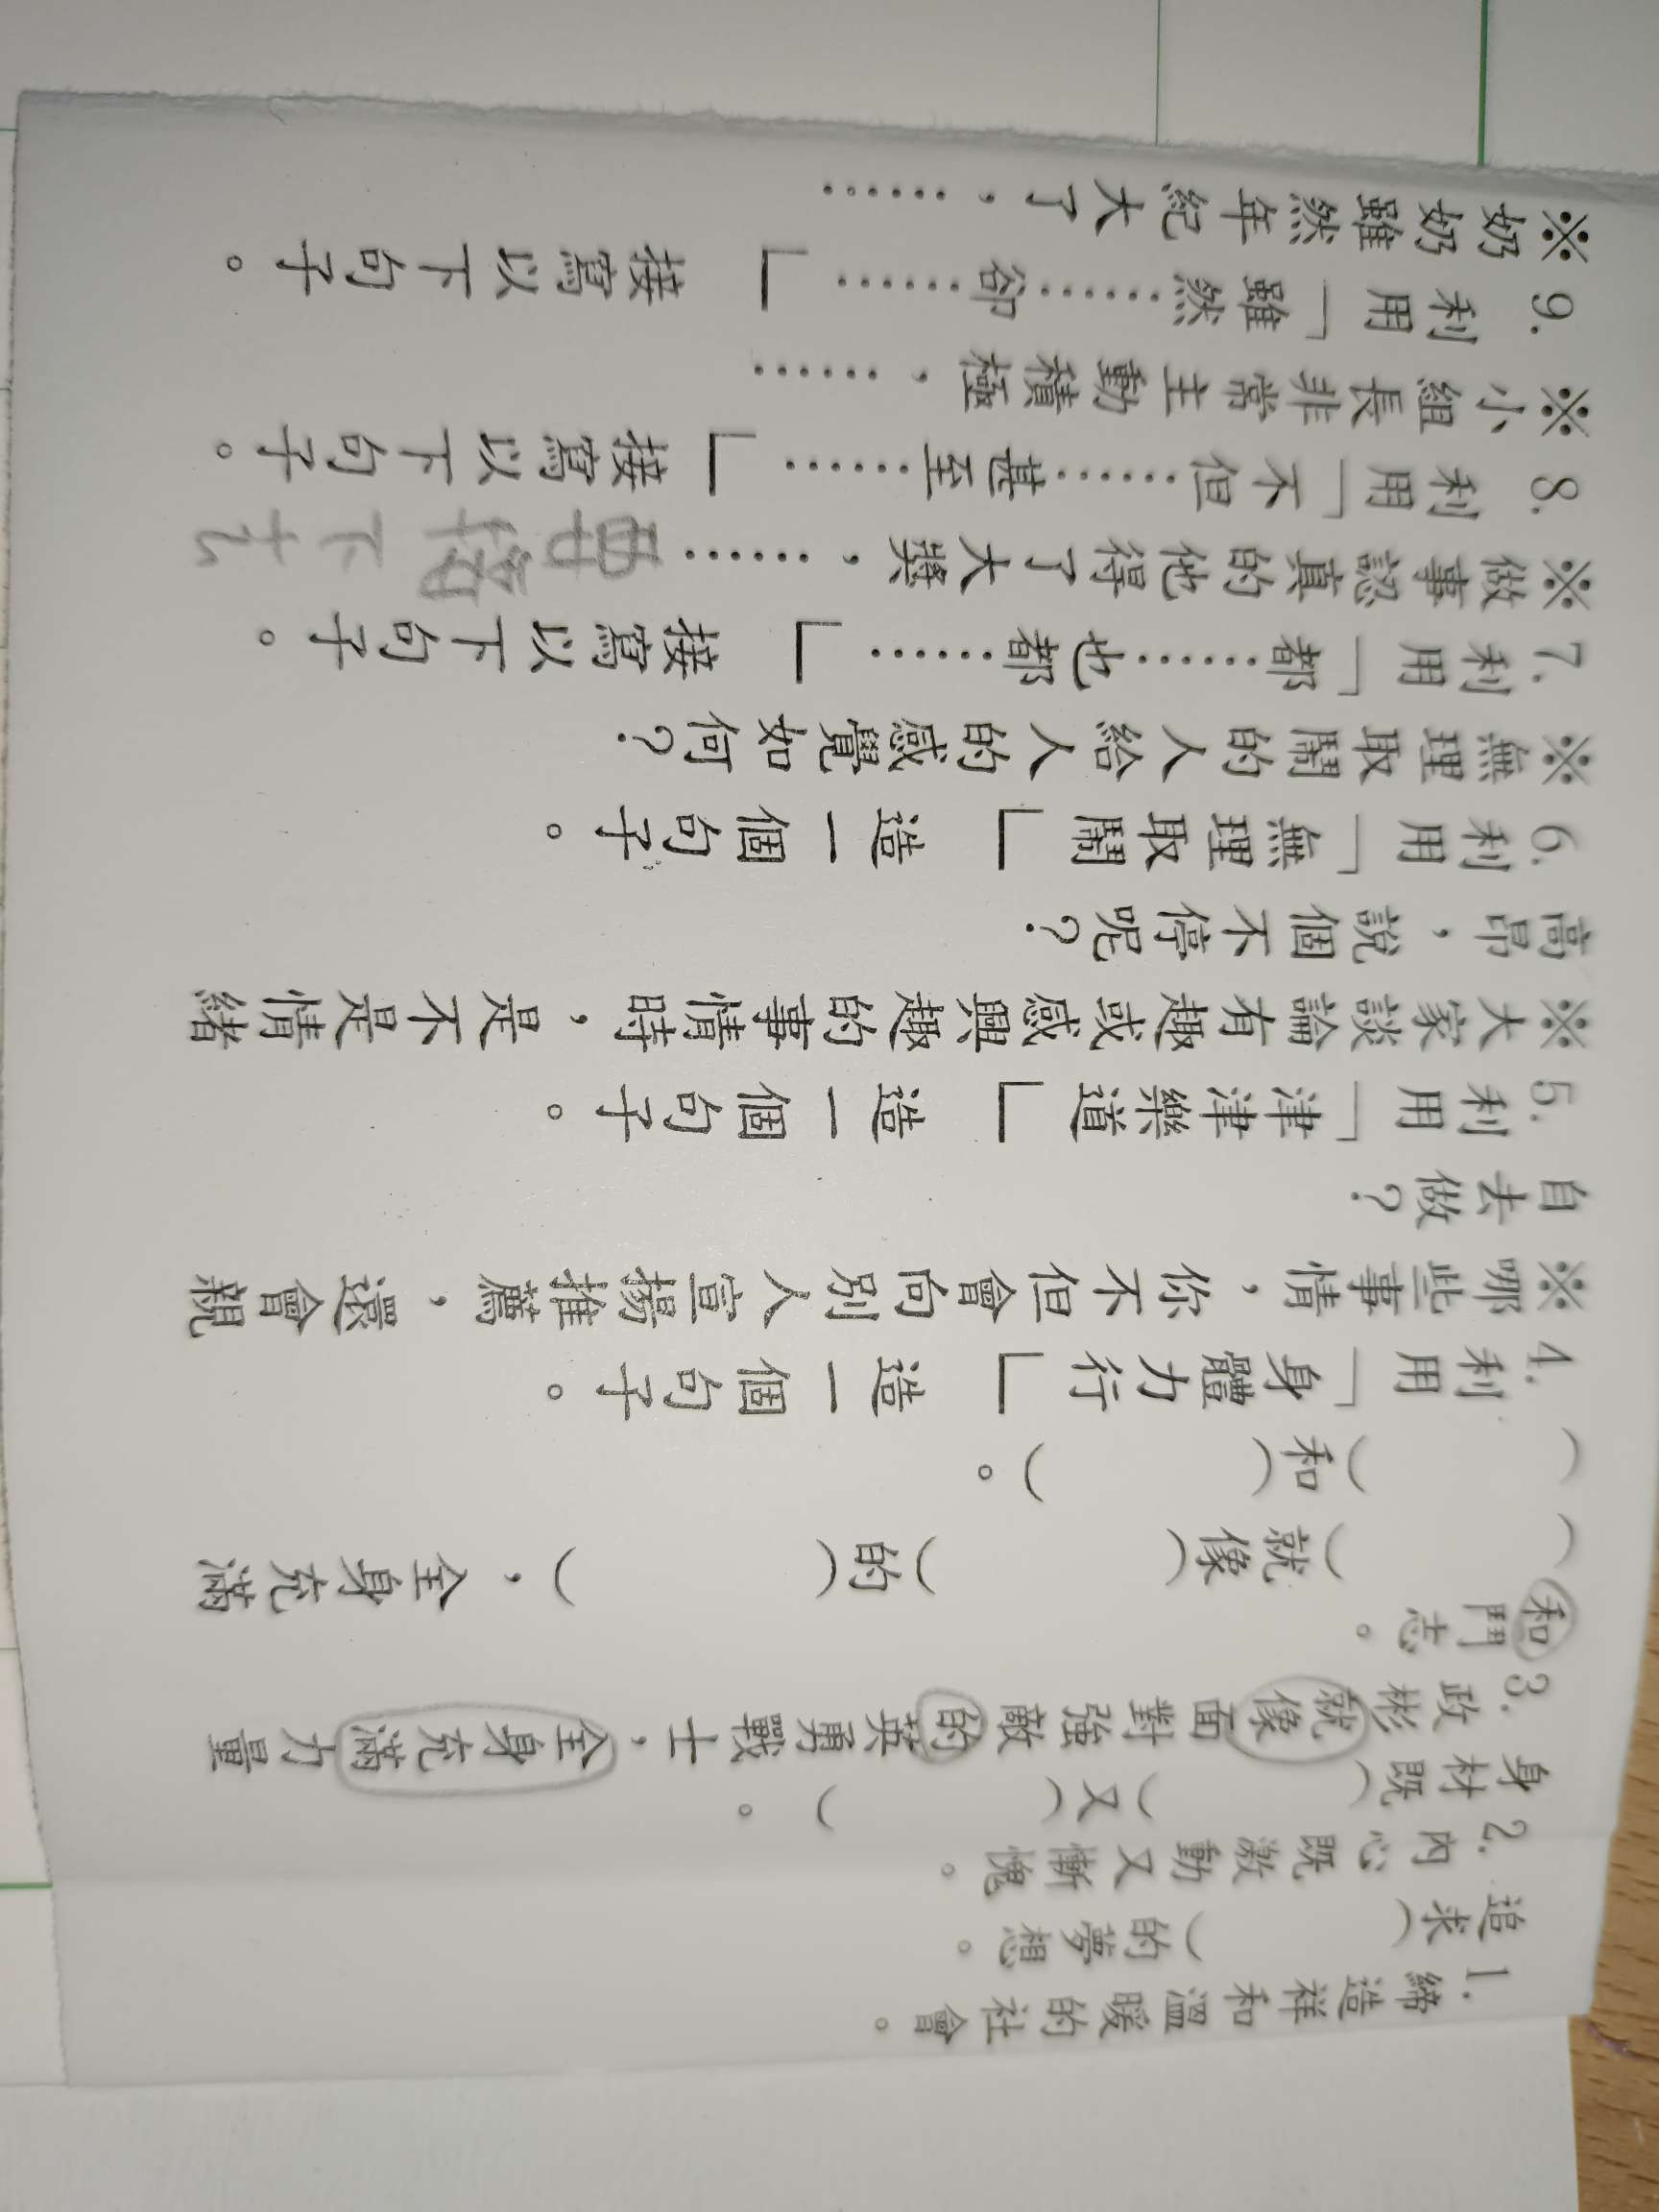 1. 締造祥和溫暖的社會。
追求( )的夢想。
2. 內心既激動又慚愧。
身材既( )又( )。
3. 政彬就像面對強敵的英勇戰士,全身充滿力量
和鬥志。
( )就像( )的( ),全身充滿
( )和( )。
4. 利用「身體力行」造一個句子。
※哪些事情,你不但會向別人宣揚推薦,還會親
自去做?
5. 利用「津津樂道」造一個句子。
※大家談論有趣或感興趣的事情時,是不是情緒
高昂,說個不停呢?
6. 利用「無理取鬧」造一個句子。
※無理取鬧的人給人的感覺如何?
7. 利用「都……也都……」接寫以下句子。
※做事認真的他得了大獎,……
8. 利用「不但……甚至……」接寫以下句子。
※小組長非常主動積極,……
9. 利用「雖然……卻……」接寫以下句子。
※奶奶雖然年紀大了,……